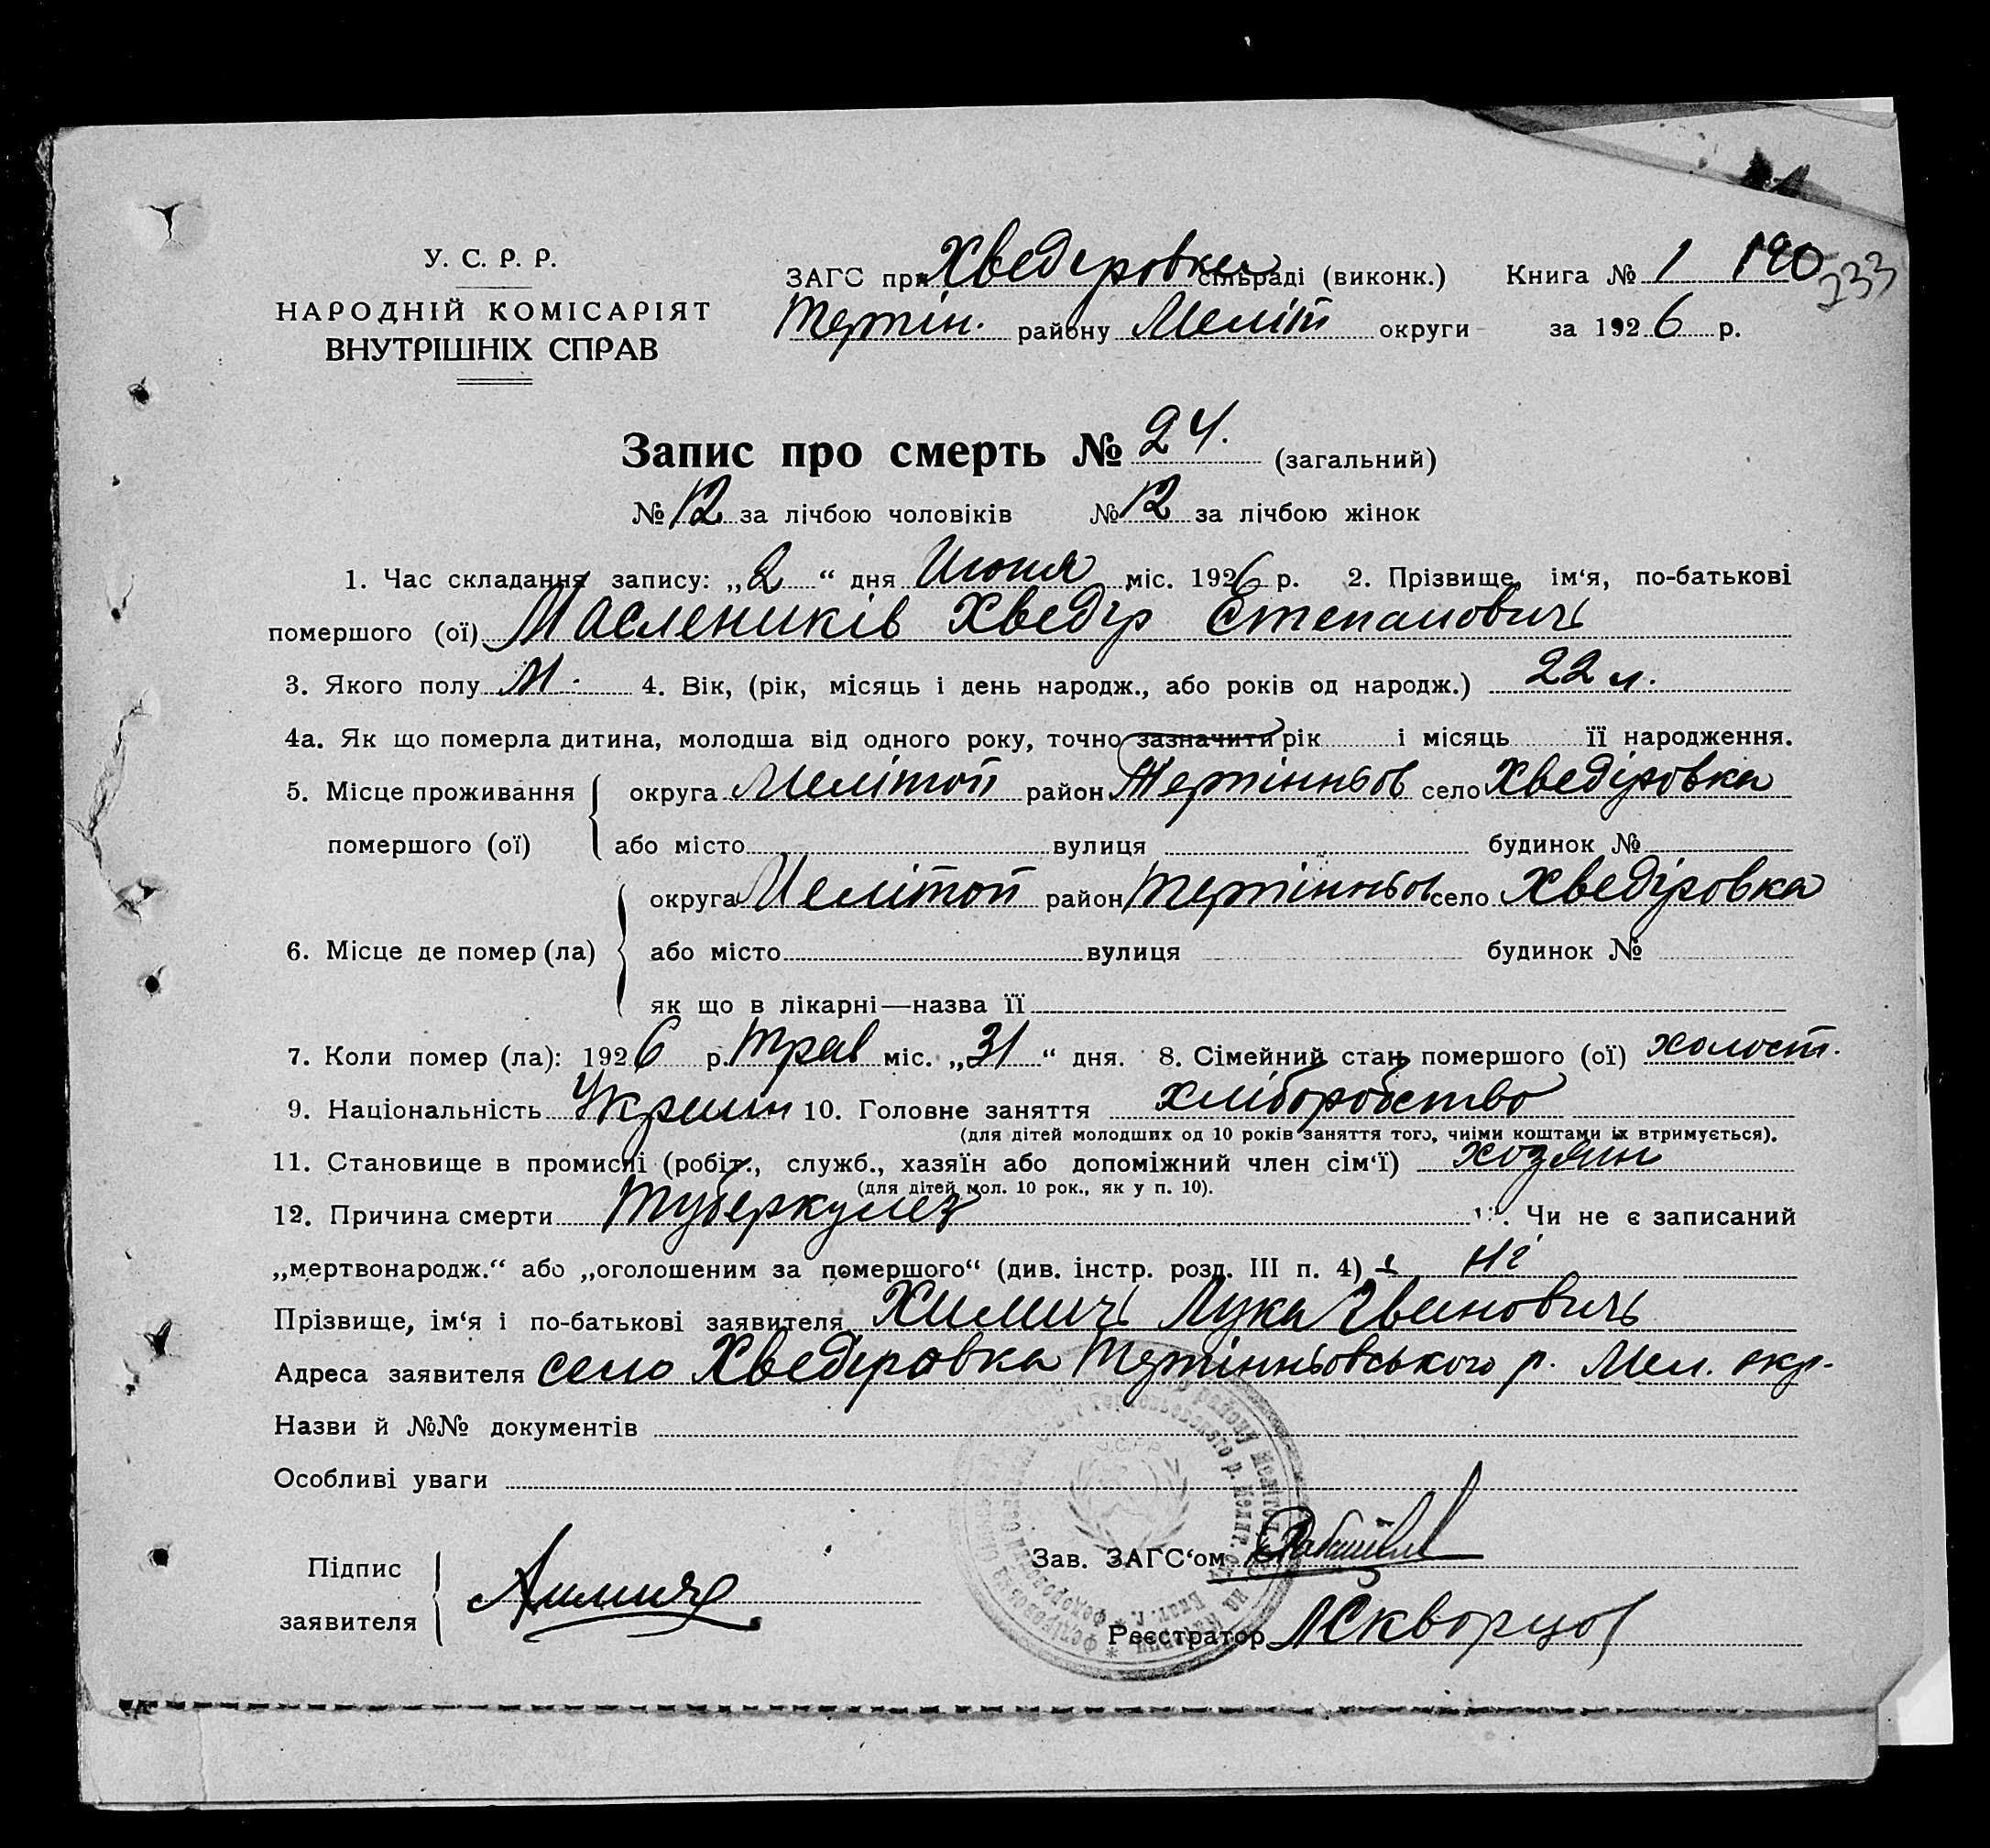 У. С. Р. Р.
НАРОДНІЙ КОМІСАРІЯТ
ВНУТРІШНІХ СПРАВ
ЗАГС при Хведіровка сільраді (виконк.) Книга № 1 190 233
Терпін. району Меліт округи за 1926 р.
Запис про смерть № 24. (загальний)
№ 12 за лічбою чоловіків № 12 за лічбою жінок
1. Час складання запису: „2“ дня Июня міс. 1926 р. 2. Прізвище, ім‘я, по-батькові
помершого (ої) Маслеників Хведір Степановичь
3. Якого полу М. 4. Вік, (рік, місяць і день народж., або років од народж.) 22 л.
4а. Як що померла дитина, молодша від одного року, точно зазначити рік і місяць її народження.
5. Місце проживання округа Мелітоп район Терпінньов село Хведіровка
помершого (ої) або місто вулиця будинок №
округа Мелітоп район Терпінньов село Хведіровка
6. Місце де помер (ла) або місто вулиця будинок №
як що в лікарні—назва її
7. Коли помер (ла): 1926 р. Трав міс. „31“ дня. 8. Сімейний стан помершого (ої) холост.
9. Національність Украин 10. Головне заняття хліборобство
(для дітей молодших од 10 років заняття того, чиїми коштами їх втримується).
11. Становище в промислі (робіт., служб., хазяїн або допоміжний член сім‘ї) хозяин
(для дітей мол. 10 рок., як у п. 10).
12. Причина смерти Туберкулез Чи не є записаний
„мертвонародж.“ або „оголошеним за помершого“ (див. інстр. розд. III п. 4) Ні
Прізвище, ім‘я і по-батькові заявителя Химичь Лука Іванович
Адреса заявителя село Хведіровка Терпінньовського р. Мел. окр.
Назви й №№ документів
Особливі уваги
Підпис
заявителя Химичь
Зав. ЗАГС‘ом
Реєстратор Скворцов
У.С.Р.Р.